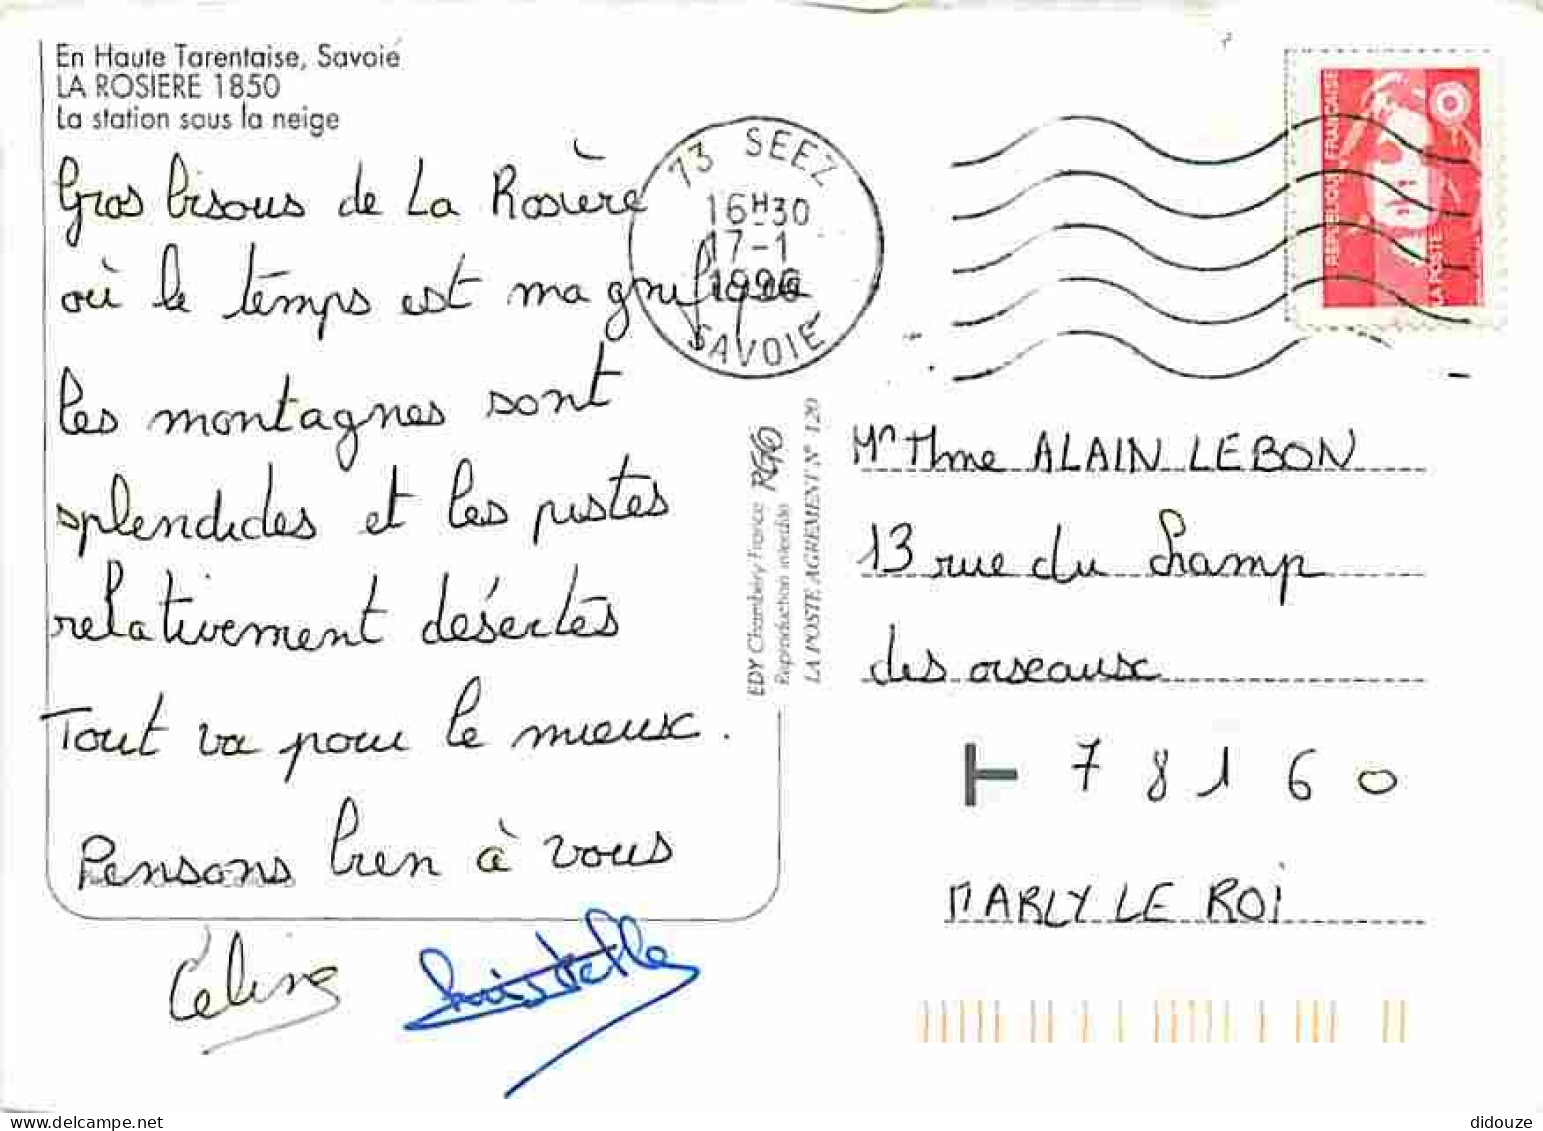 En Haute Tarentaise, Savoie
LA ROSIERE 1850
La station sous la neige
Gros bisous de La Rosière
où le temps est magnifique
les montagnes sont
splendides et les pistes
relativement désertés
Tout va pour le mieux.
Pensons bien à vous
Céline Christelle
73 SEEZ
16H30
17-1
1996
SAVOIE
REPUBLIQUE FRANÇAISE
LA POSTE
EDY Chambéry France
Reproduction interdite
LA POSTE AGREMENT N° 120
Mr Mme ALAIN LEBON
13 rue du champ
des oiseaux
78160
MARLY LE ROI
didouze